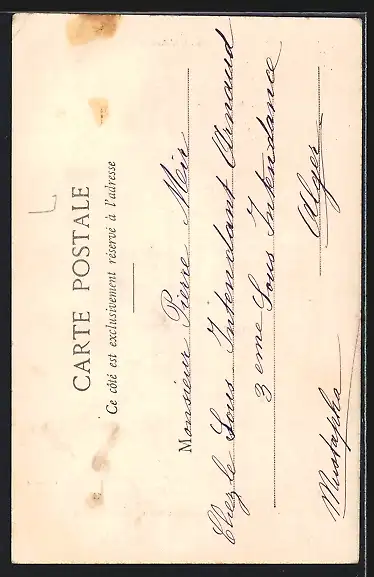 CARTE POSTALE
Ce côté est exclusivement réservé à l'adresse
Monsieur Pierre Meir
Chez le Sous Intendant Arnaud
3 eme Sous Intendance
Mustapha Alger